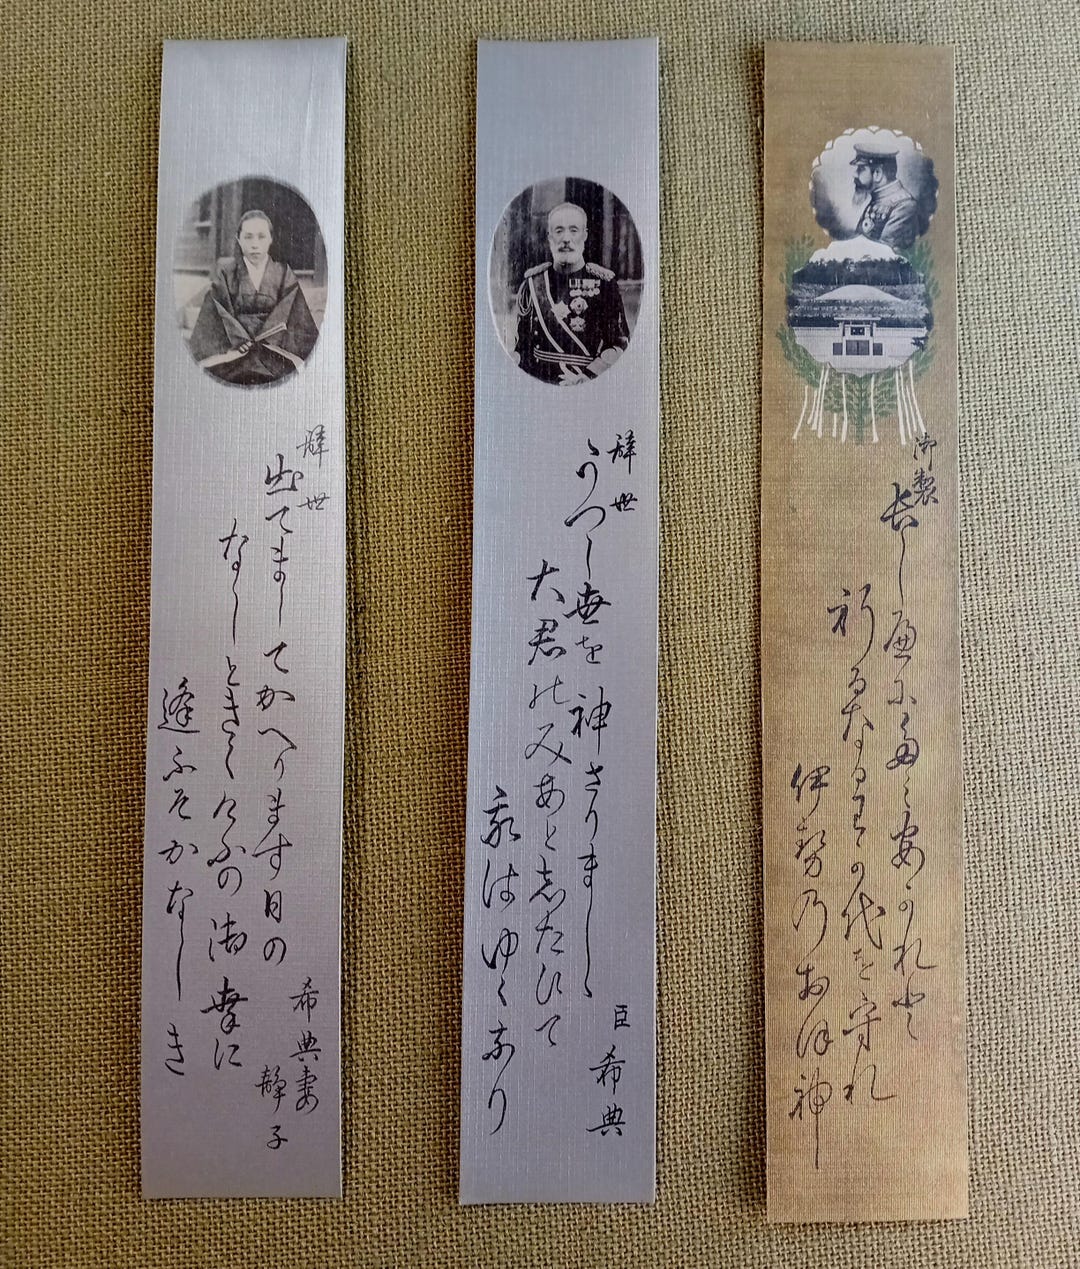 御製
長しへにたミ安かれと
祈るなるわか代を守れ
伊勢乃おほ神
辞世
うつし世を神さりましゝ
大君のみあと志たひて
我はゆくなり
臣 希典
辞世
出てましてかへります日の
なしときくけふの御幸に
逢ふそかなしき
希典妻
静子